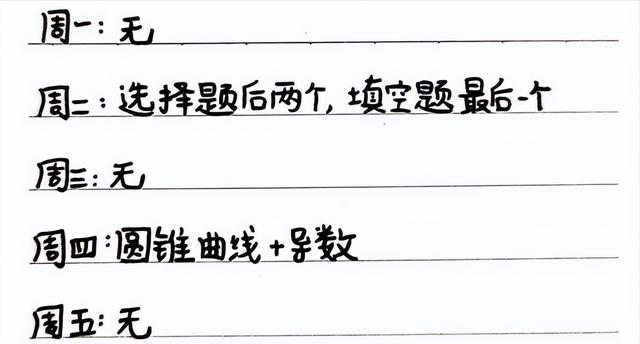 周一：无
周二：选择题后两个，填空题最后一个
周三：无
周四：圆锥曲线+导数
周五：无